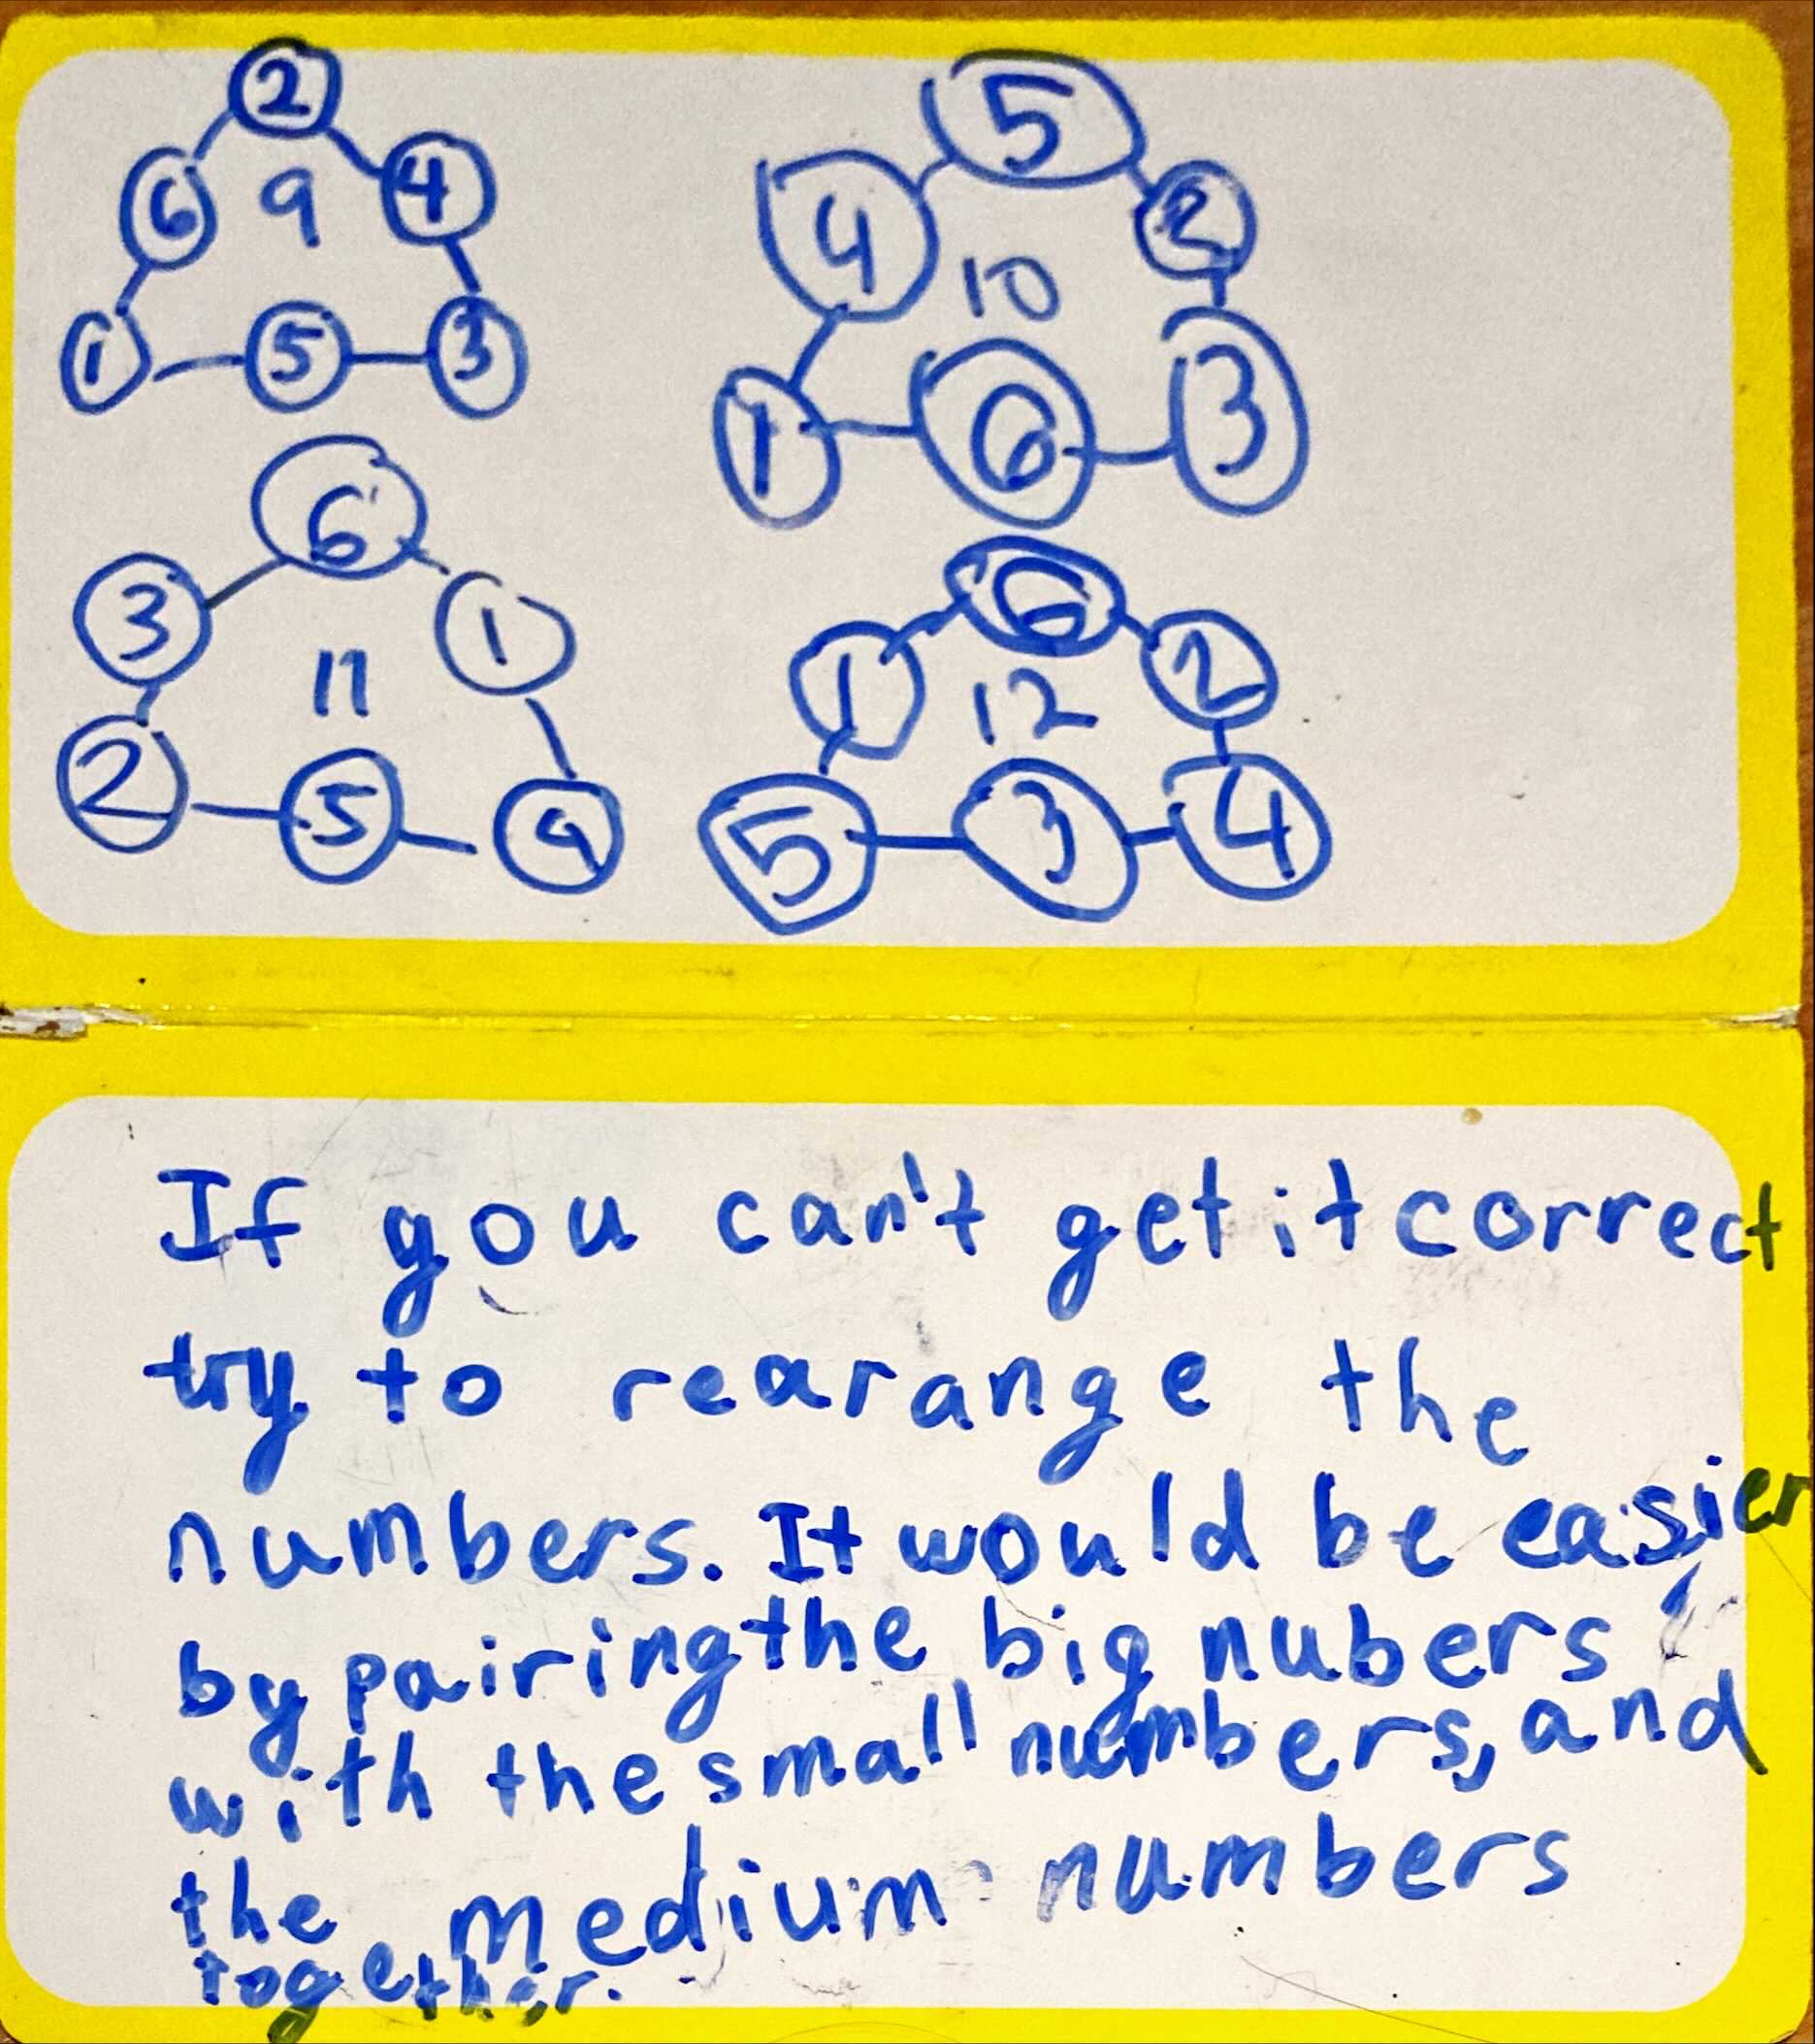 2
6 9 4
1 5 3
5
4 2
10
1 6 3
6
3 1
11
2 5 4
6
1 12 2
5 3 4
If you can't get it correct
try to rearange the
numbers. It would be easier
by pairing the big nubers
with the small numbers, and
the medium numbers
together.